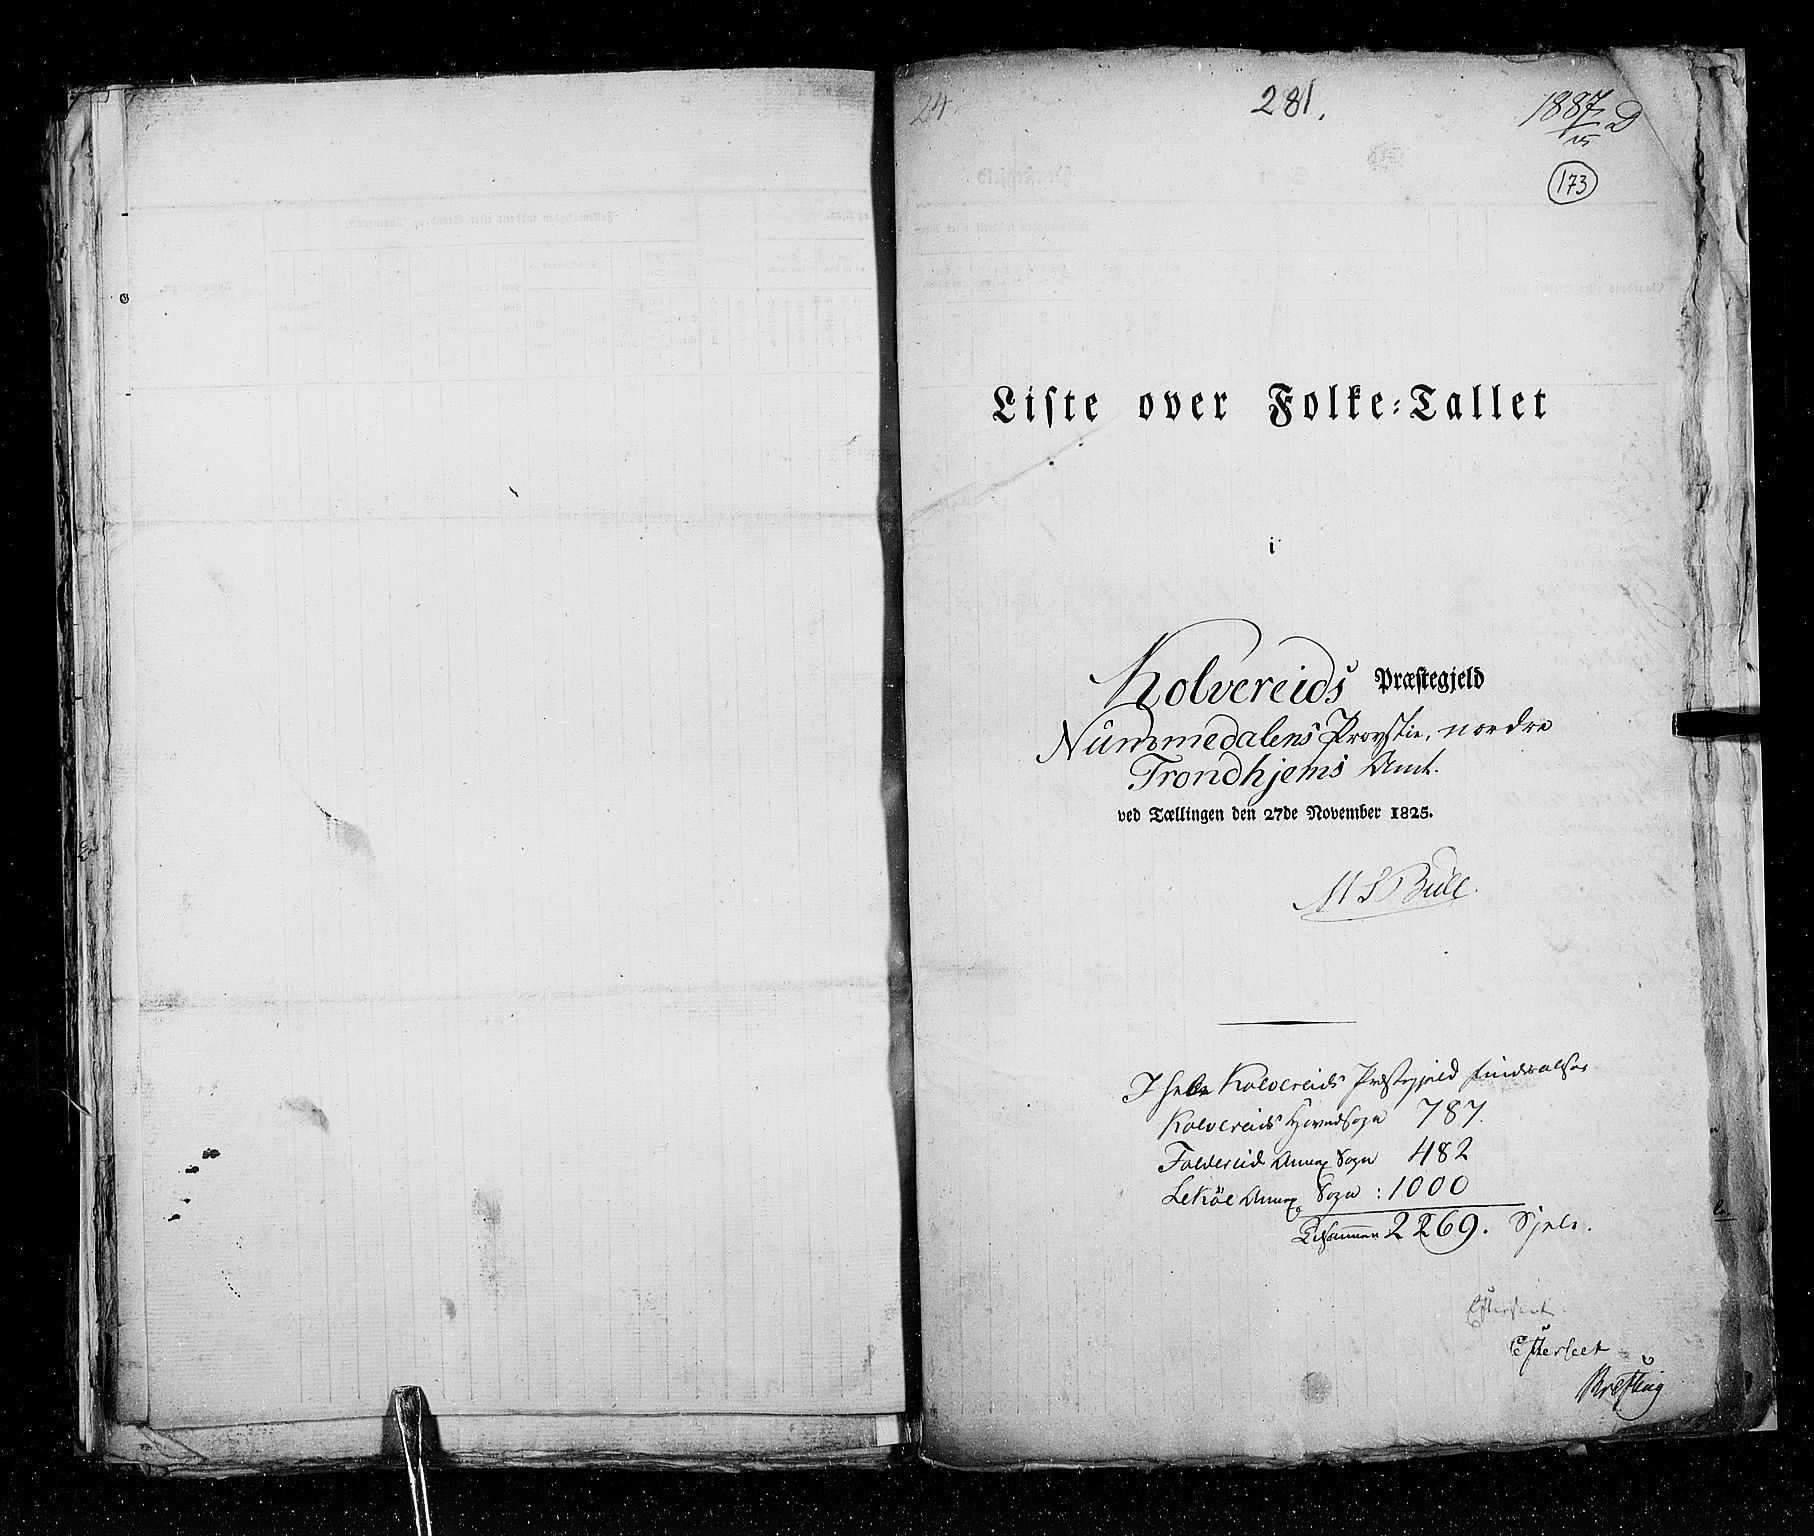 24
281.
1887 D
173
Liste over Folke=Tallet
i
Kolvereids Præstegjeld
Nummedalens Provstie, nordre
Trondhjems Amt.
ved Tællingen den 27de November 1825.
M S Bull.
I hele Kolvereids Præstegjeld
Kolvereids Hovedsogn 787.
Foldereid Annex Sogn 482
Leköe Annex Sogn : 1000
Tilsammen 2269. Sjele.
Efterseet
Efterseet